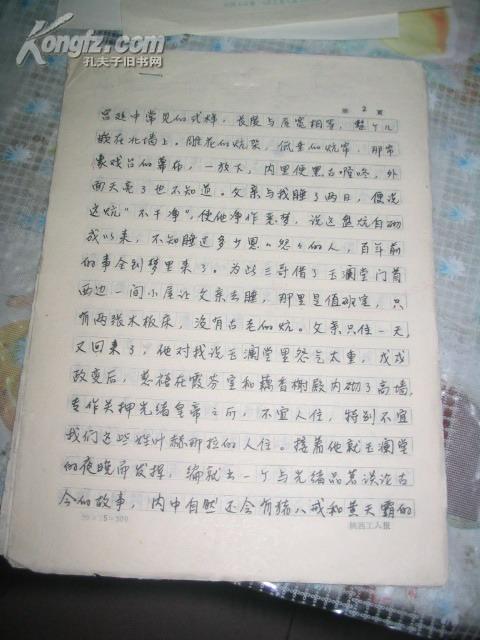 Kongfz.com
孔夫子旧书网
第 2 页
宫廷中常见的式样，长度与屋宽相等，整个儿
嵌在北墙上。雕花的炕架，低垂的炕帘，那帘
象戏台的幕布，一放下，内里便黑古隆咚，外
面天亮了也不知道。父亲与我睡了两日，便说
这炕"不干净"，使他净作恶梦，说这盘炕自砌
成以来，不知睡过多少恩恩怨怨的人，百年前
的事全到梦里来了。为此三哥借了玉澜堂门首
西边一间小屋让父亲去睡，那里是值班室，只
有两张木板床，没有古老的炕。父亲只住一天，
又回来了，他对我说玉澜堂里怨气太重，戊戌
政变后，慈禧在霞芬室和藕香榭殿内砌了高墙，
专作关押光绪皇帝之所，不宜人住，特别不宜
我们这些姓叶赫那拉的人住。接着他就玉澜堂
的夜晚而发挥，编就出一个与光绪品茗谈论古
今的故事，内中自然还会有猪八戒和黄天霸的
20×15=300
陕西工人报